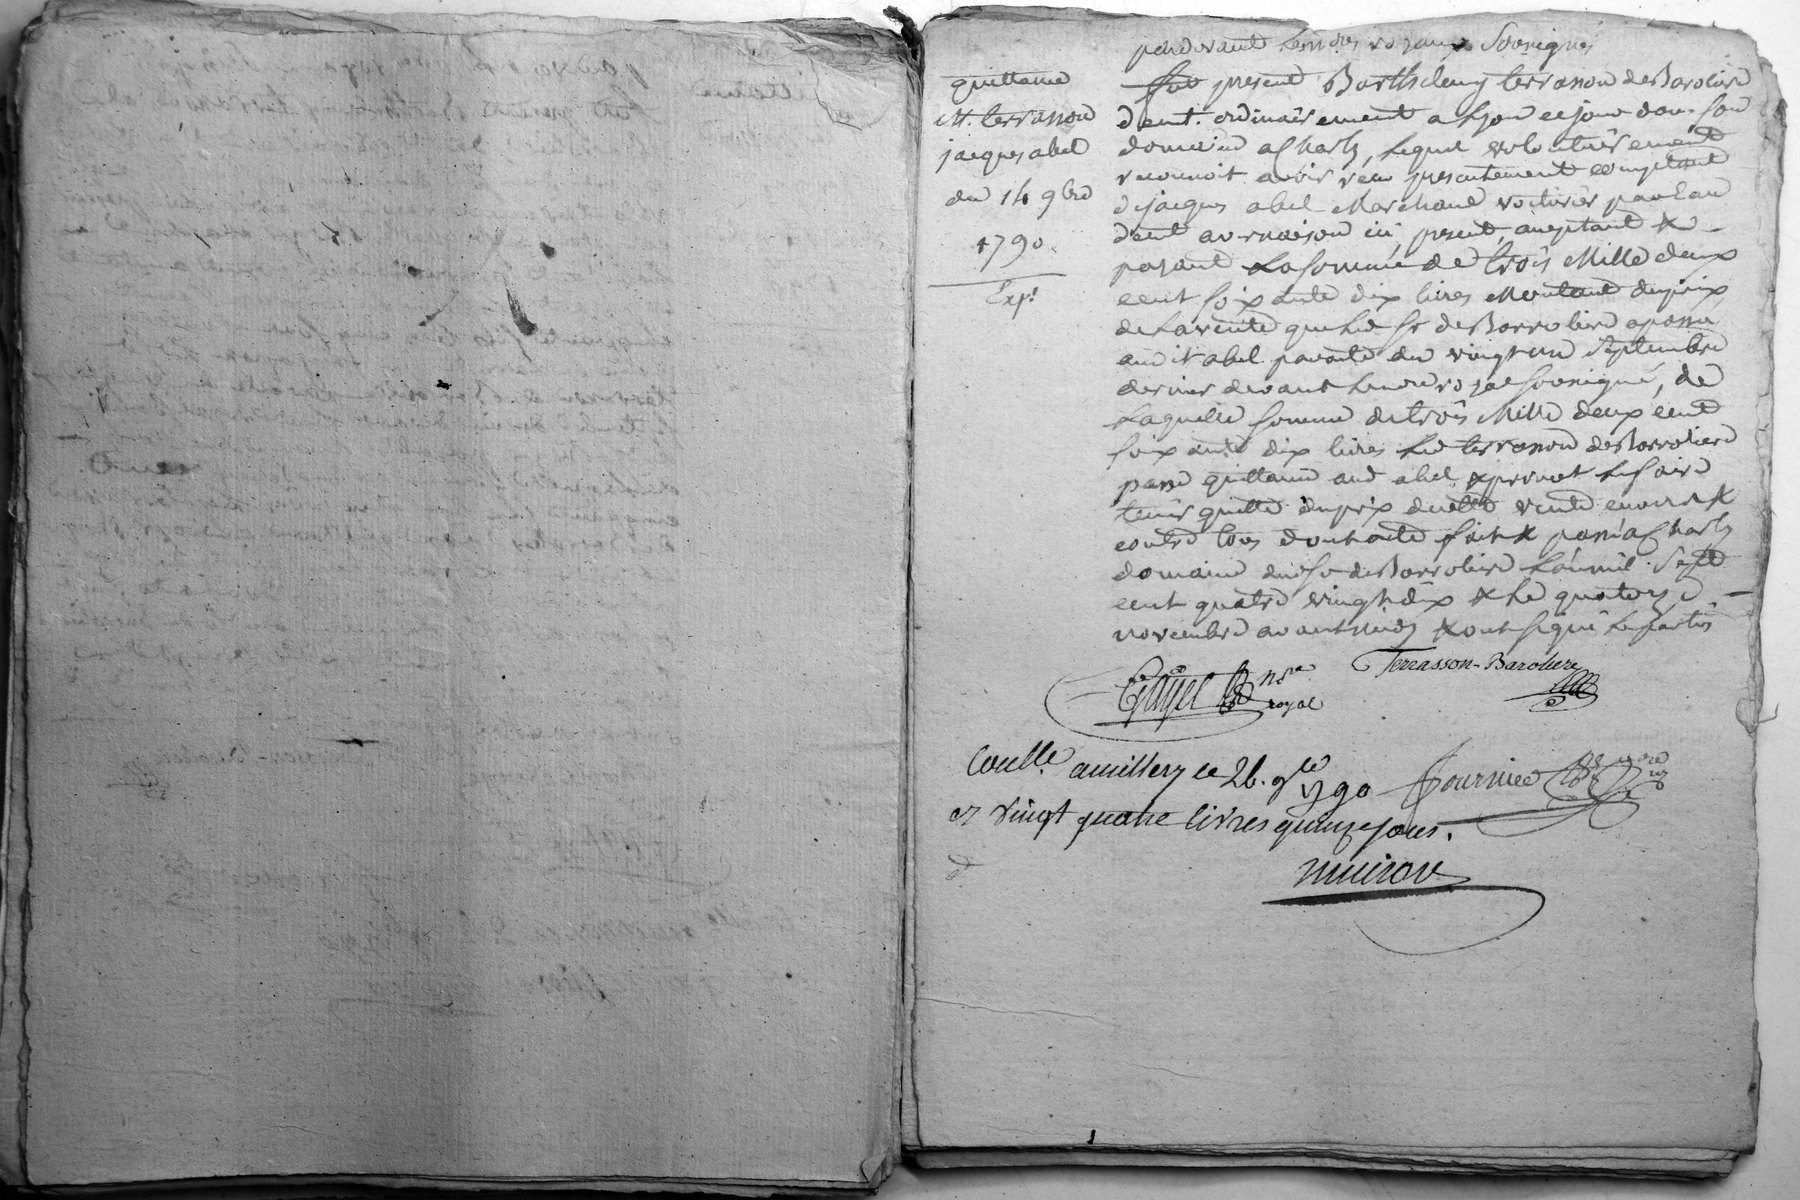 pardevant Les nores royaux Sousignés
quittance
Mr. terrasson
jacques abel
du 14 9bre
1790.
Exp.
fut présent Barthelemy terrasson de Baroliere
dem.t ordinairement a Lyon ce jour dans son
domaine a Charly, Lequel volontairement
reconnoit avoir reçu presentement comptant
de jacques abel Marchand voiturier par eau
dem.t a vernaison ici present, aceptant &
payant La somme de trois Mille deux
cent soixante dix livres Montant du prix
de La vente que Led. Sr de Barroliere a passé
audit abel par acte du vingt un Septembre
dernier devant Le nore royal Sousigné, de
Laquelle somme de trois Mille deux cent
soixante dix livres Led terrasson de Barroliere
passe quittance aud abel & promet Le faire
tenir quitte du prix de cette vente envers &
contre tous dont acte fait & passé a Charly
domaine dud Sr de Barroliere L'an mil Sept
cent quatre vingt dix & Le quatorze
novembre avant midy & ont signé Les parties
Terrasson-Baroliere
nre
royal
Con.lle a millery ce 26. 9bre 1790
Fournier
et vingt quatre livres quinze sous.